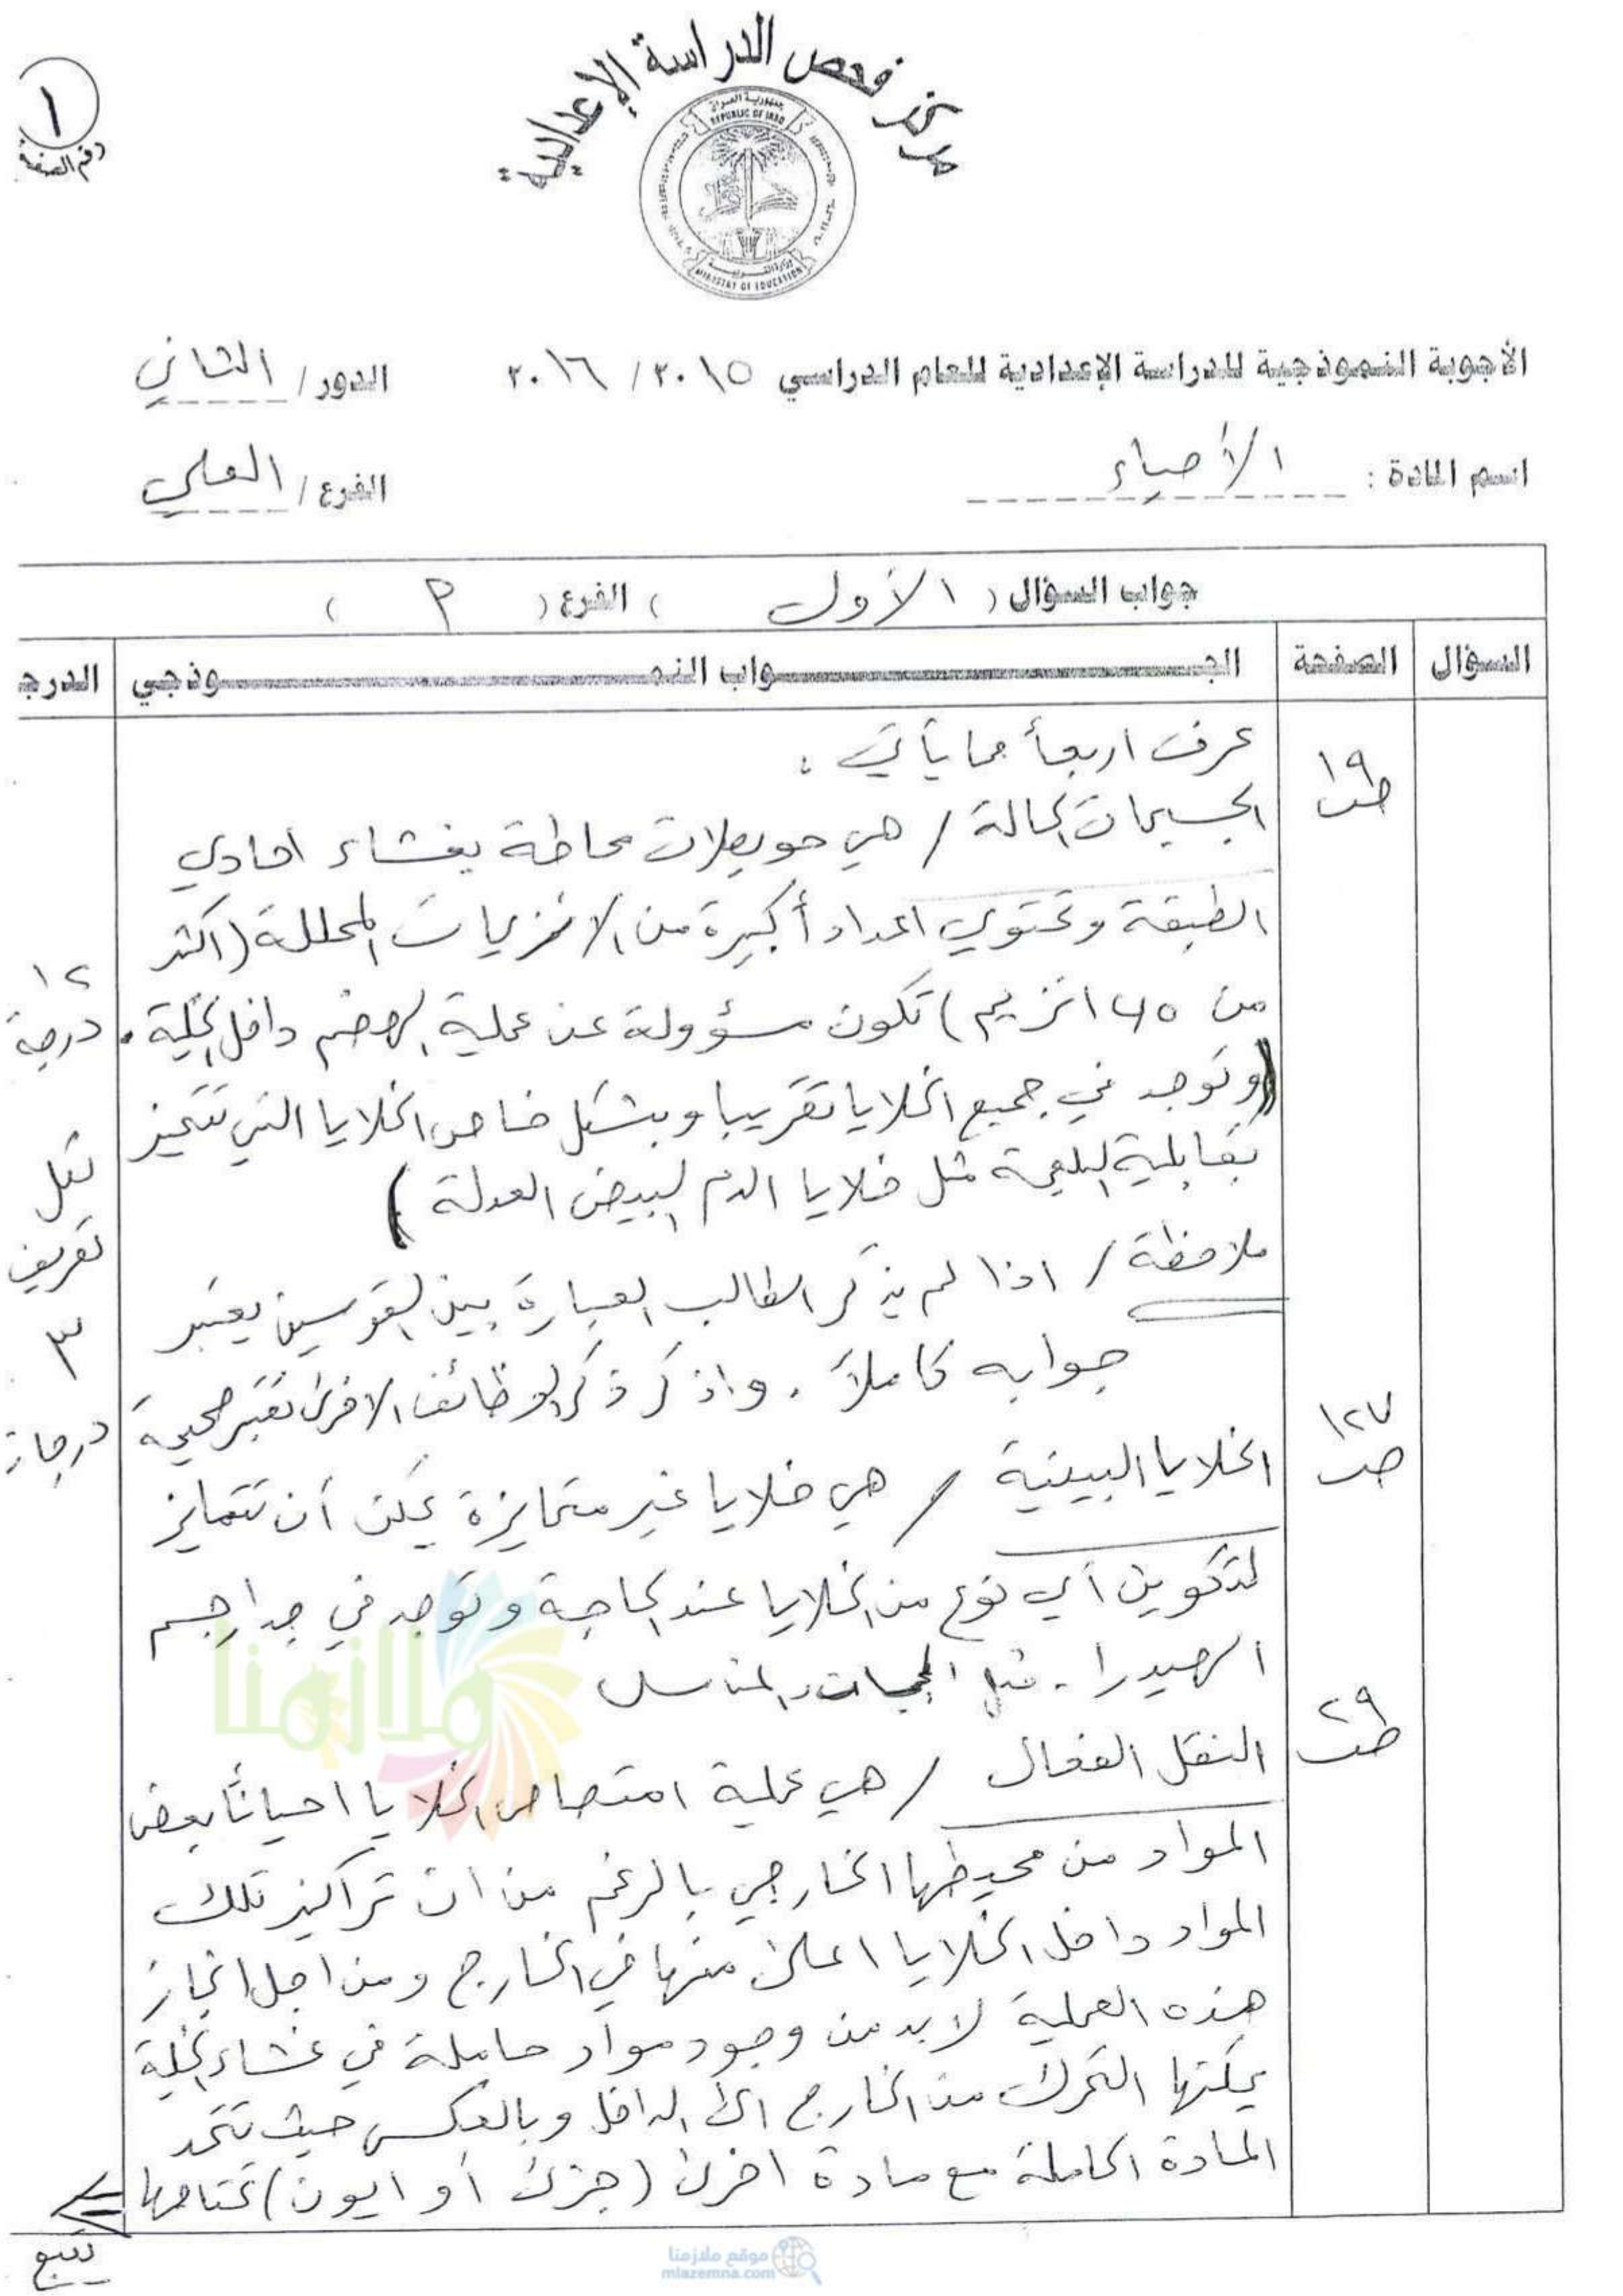 ١
رقم الصفحة
مركز فحص الدراسة الإعدادية
جمهورية العراق
REPUBLIC OF IRAQ
وزارة التربية
MINISTRY OF EDUCATION
الأجوبة النموذجية للدراسة الإعدادية للعام الدراسي ٢٠١٥ / ٢٠١٦ الدور / الثاني
اسم المادة : الأحياء الفرع / العلمي
جواب السؤال ( الأول ) الفرع ( م )
السؤال الصفحة الجـــواب النمـــوذجي الدرج
عرف اربعاً مما يأتي :
ص ١٩ الجسيمات الحالة / هي حويصلات محاطة بغشاء احادي
الطبقة وتحتوي اعداداً كبيرة من الانزيمات المحللة (اكثر
من ٤٥ انزيم) تكون مسؤولة عن عملية الهضم داخل الخلية . ١٢ درجة
(وتوجد في جميع الخلايا تقريبا وبشكل خاص الخلايا التي تتميز
بقابلية البلعمة مثل خلايا الدم البيض العدلة )
ملاحظة / اذا لم يذكر الطالب العبارة بين القوسين يعتبر
جوابه كاملاً . واذ ذكر الوظائف الاخرى تعتبر صحيحة
لكل تعريف ٣ درجات
ص ١٢٧ الخلايا البينية / هي خلايا غير متمايزة يمكن أن تتمايز
لتكوين أي نوع من الخلايا عند الحاجة وتوجد في جدار جسم
الهيدرا . مثل المناسل
ص ٢٩ النقل الفعال / هي عملية امتصاص الخلايا احياناً بعض
المواد من محيطها الخارجي بالرغم من ان تراكيز تلك
المواد داخل الخلايا اعلى منها في الخارج ومن اجل انجاز
هذه العملية لابد من وجود مواد حاملة في غشاء الخلية
يمكنها التحرك من الخارج الى الداخل وبالعكس حيث تتحد
المادة الحاملة مع مادة اخرى (جزئ أو ايون) تحتاجها
يتبع
ملازمنا
موقع ملازمنا
mlazemna.com